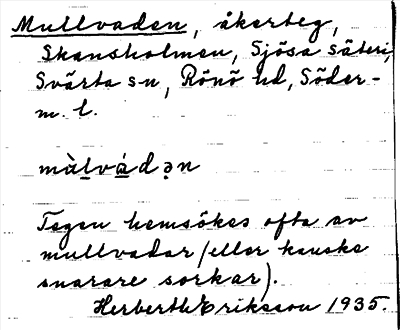 Mullvaden, åkerteg,
Skansholmen, Sjösa säteri,
Svärta sn, Rönö hd, Söder-
m. l.
màlvád ən
Tegen hemsökes ofta av
mullvadar (eller kanske
snarare sorkar).
Herberth Eriksson 1935.